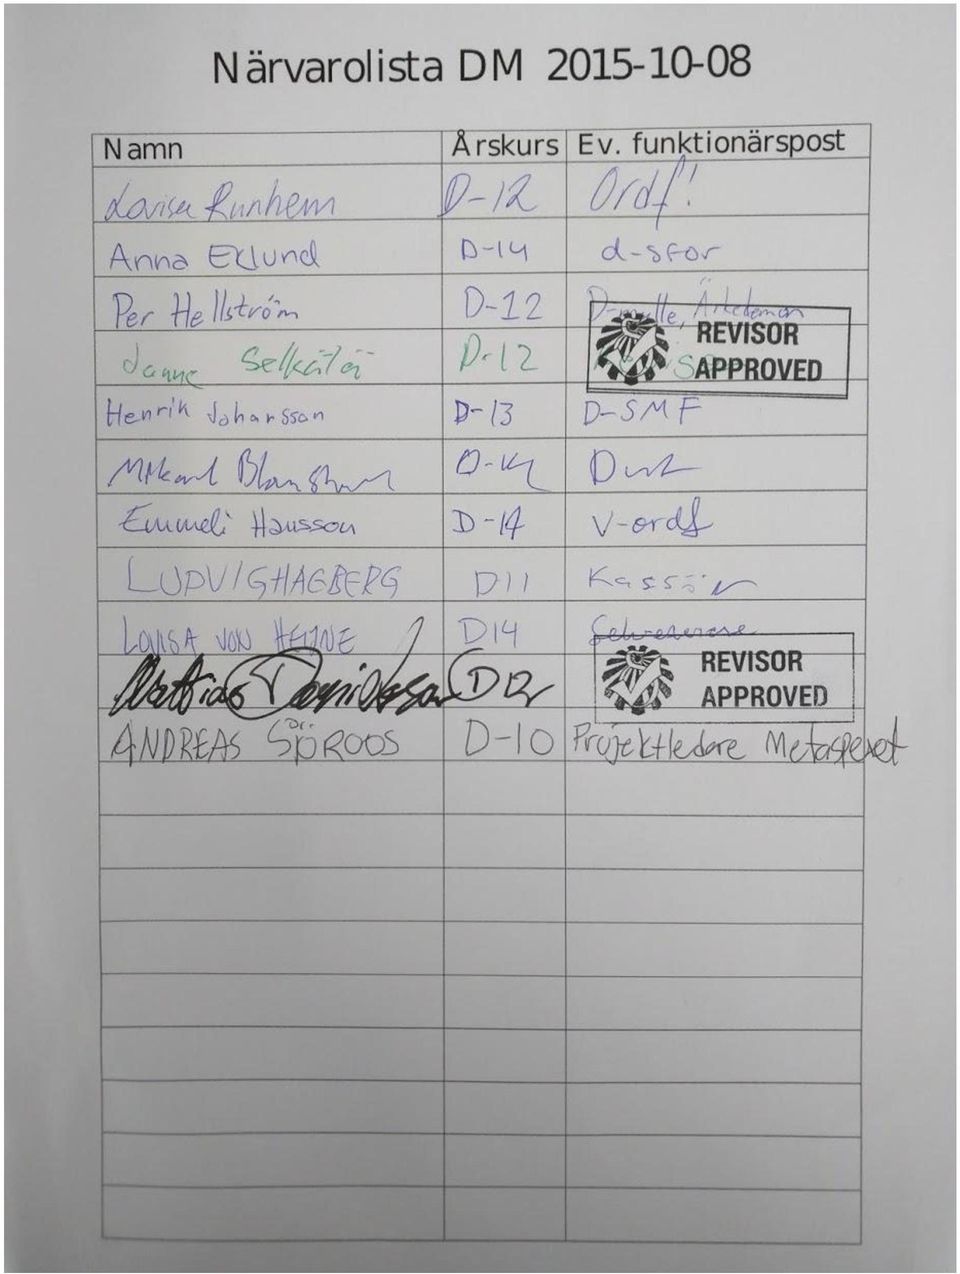 Närvarolista DM 2015-10-08
Namn Årskurs Ev. funktionärspost
Lovisa Runhem D-12 Ordf!
Anna Eklund D-14 d-sfor
Per Hellström D-12 D-mulle, Ärkedemon
REVISOR
Janne Selkälä D-12
APPROVED
Henrik Johansson D-13 D-SMF
Mikael
Emmeli Hansson D-14 V-ordf
LUDVIG HAGBERG D11 Kassör
LOVISA VON HEIJNE D14 Sekreterare
REVISOR
Mattias Danielsson D12
APPROVED
ANDREAS SJÖROOS D-10 Projektledare Metaspexet